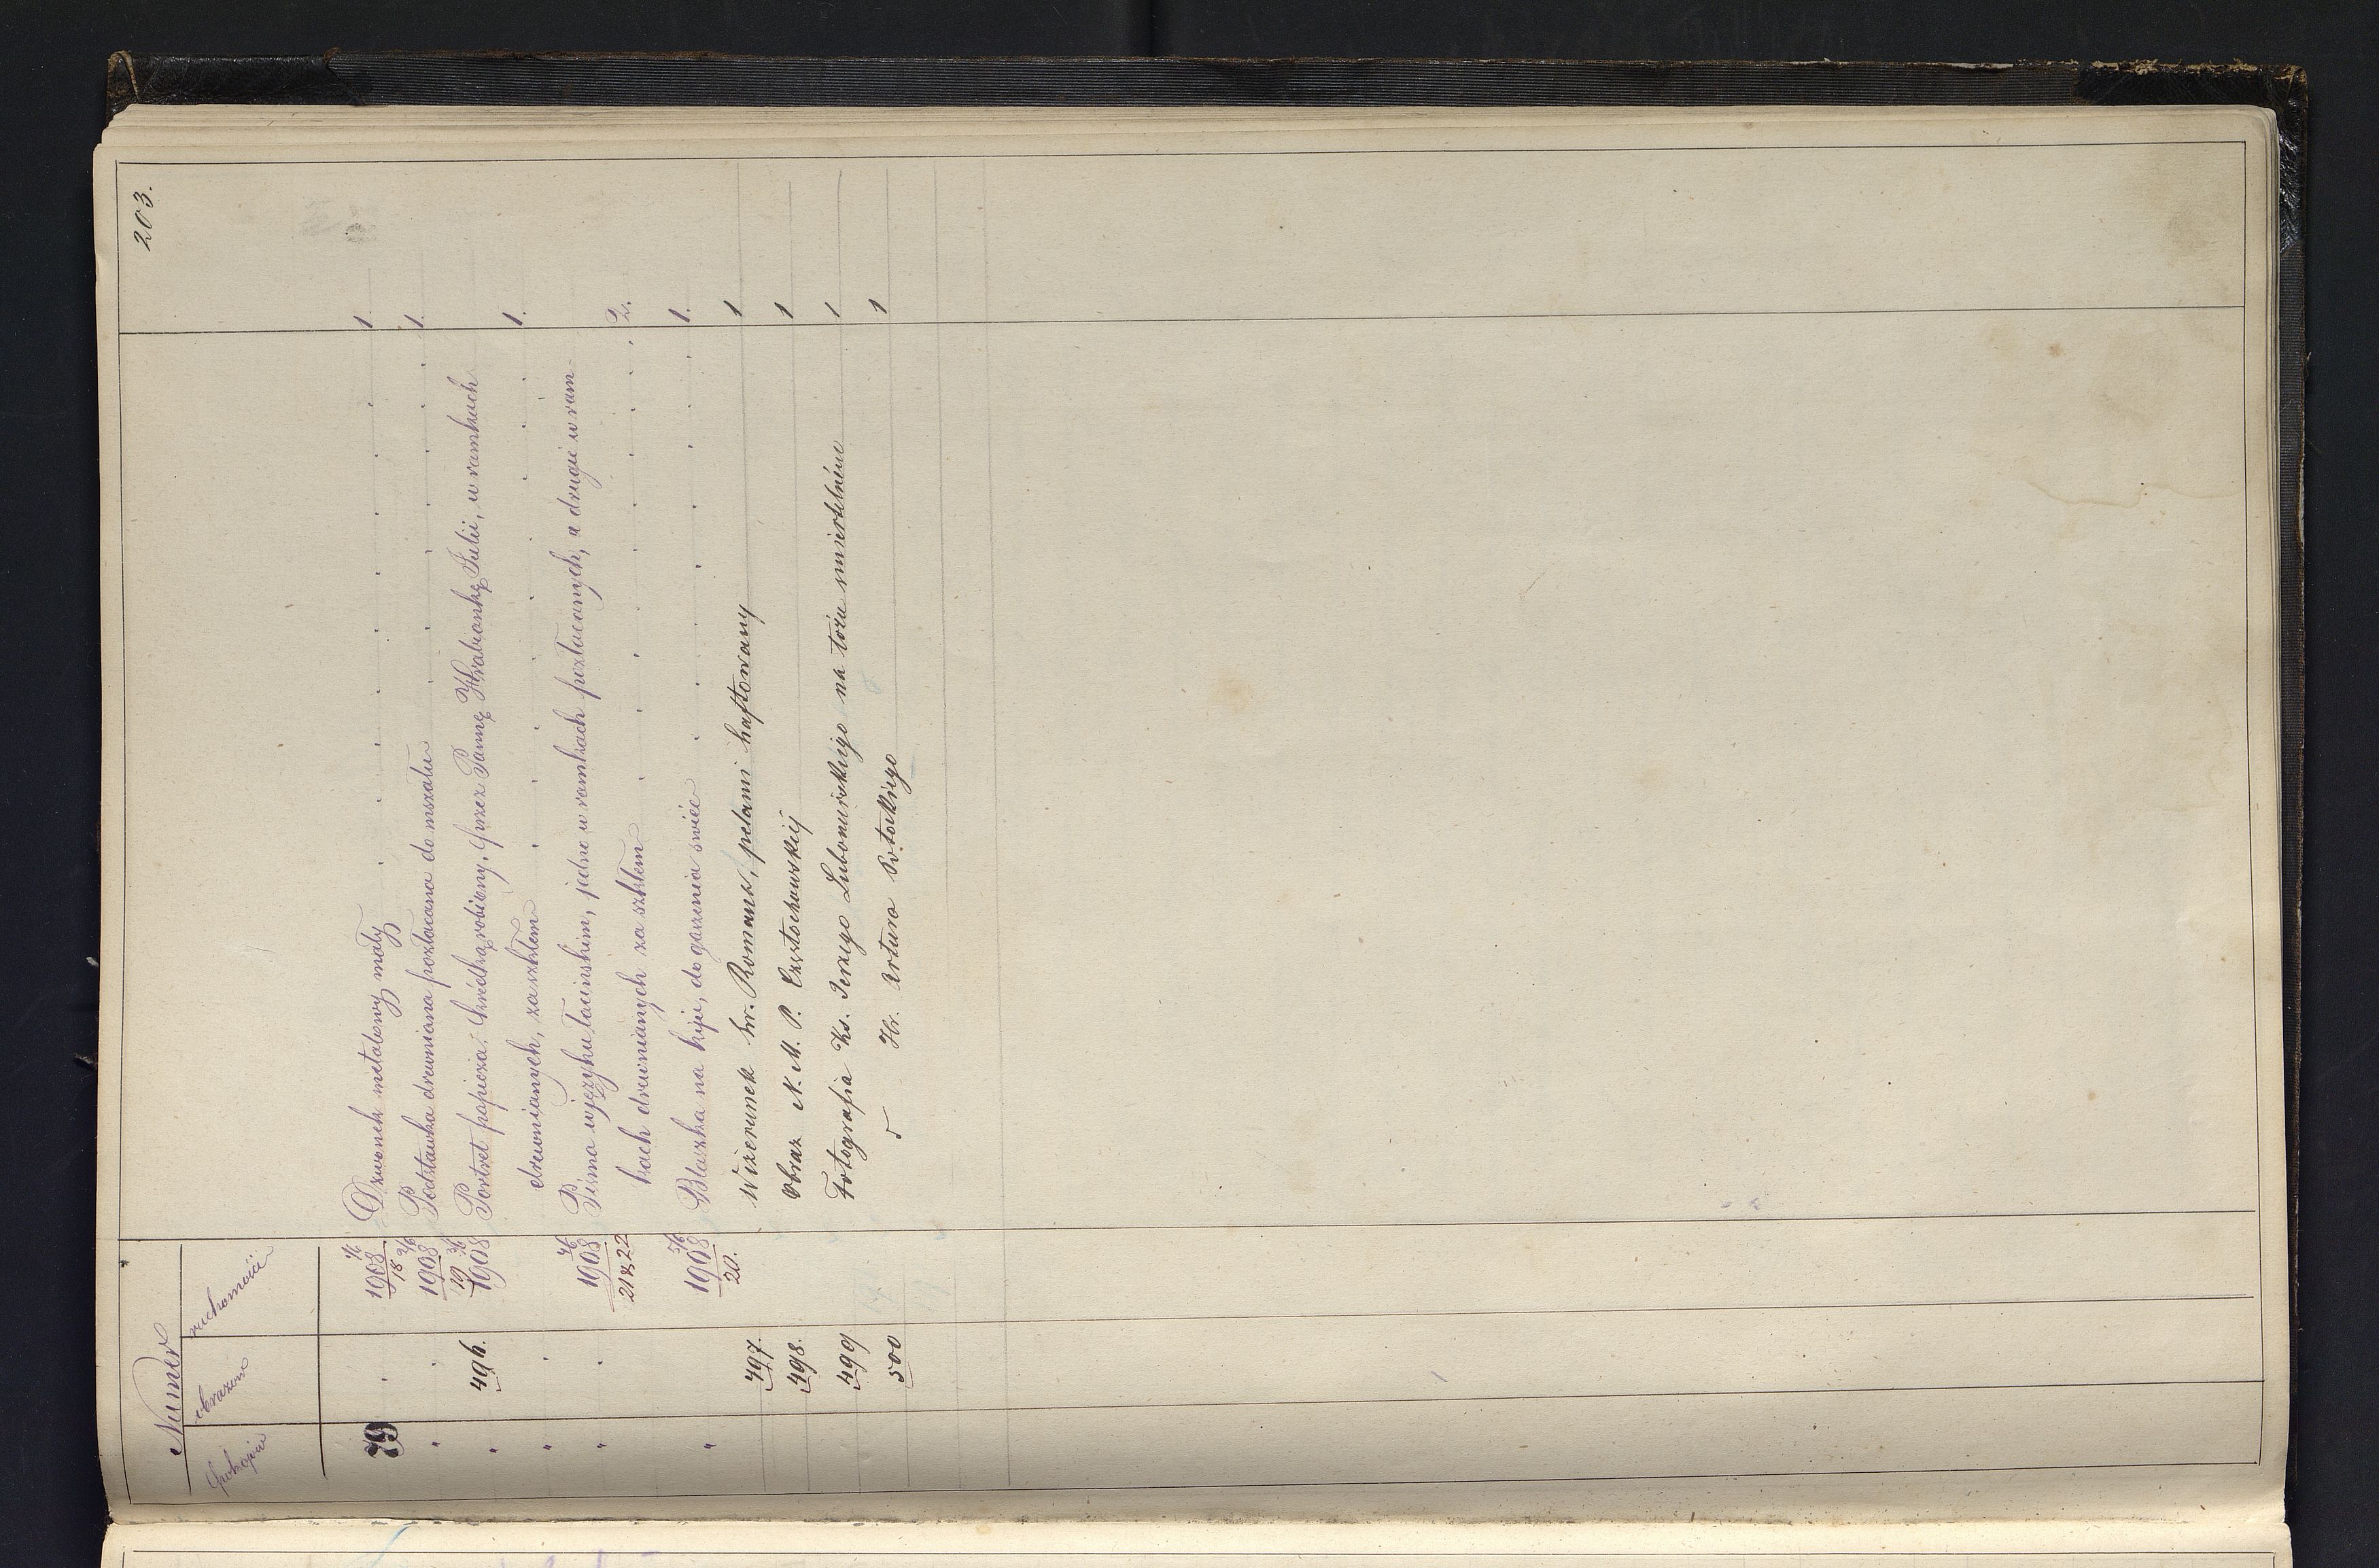 203.
Numer
pokoju obrazu ruchomości
79 1908 1/6 18 Dzwonek metalowy mały 1.
" 1908 2/6 19 Podstawka drewniana pozłacana do mszału 1.
" 496. 1908 3/6 Portret papieża, kredką robiony, przez Pannę Hrabiankę Julii, w ramkach
" drewnianych, za szkłem 1.
" 1908 4/6 21 & 22 Pismo w języku łacińskim, jedne w ramkach pozłacanych, a drugie w ram-
kach drewnianych za szkłem 2.
" 1908 5/6 20. Blaszka na kiju, do gaszenia świec 1.
497. Wizerunek hr. Romana, pelami haftowany 1
498. Obraz N. M. P. Częstochowskiej 1
499 Fotografia Ks. Jerzego Lubomirskiego na łożu śmiertelnem 1
500 " Hr. Artura Potockiego 1